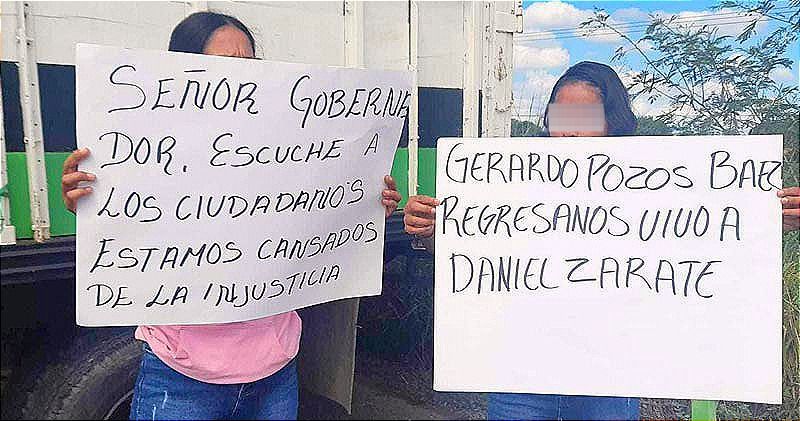 SEÑOR GOBERNA
DOR. ESCUCHE A
LOS CIUDADANOS
ESTAMOS CANSADOS
DE LA INJUSTICIA
GERARDO POZOS BAEZ
REGRESANOS VIVO A
DANIEL ZARATE